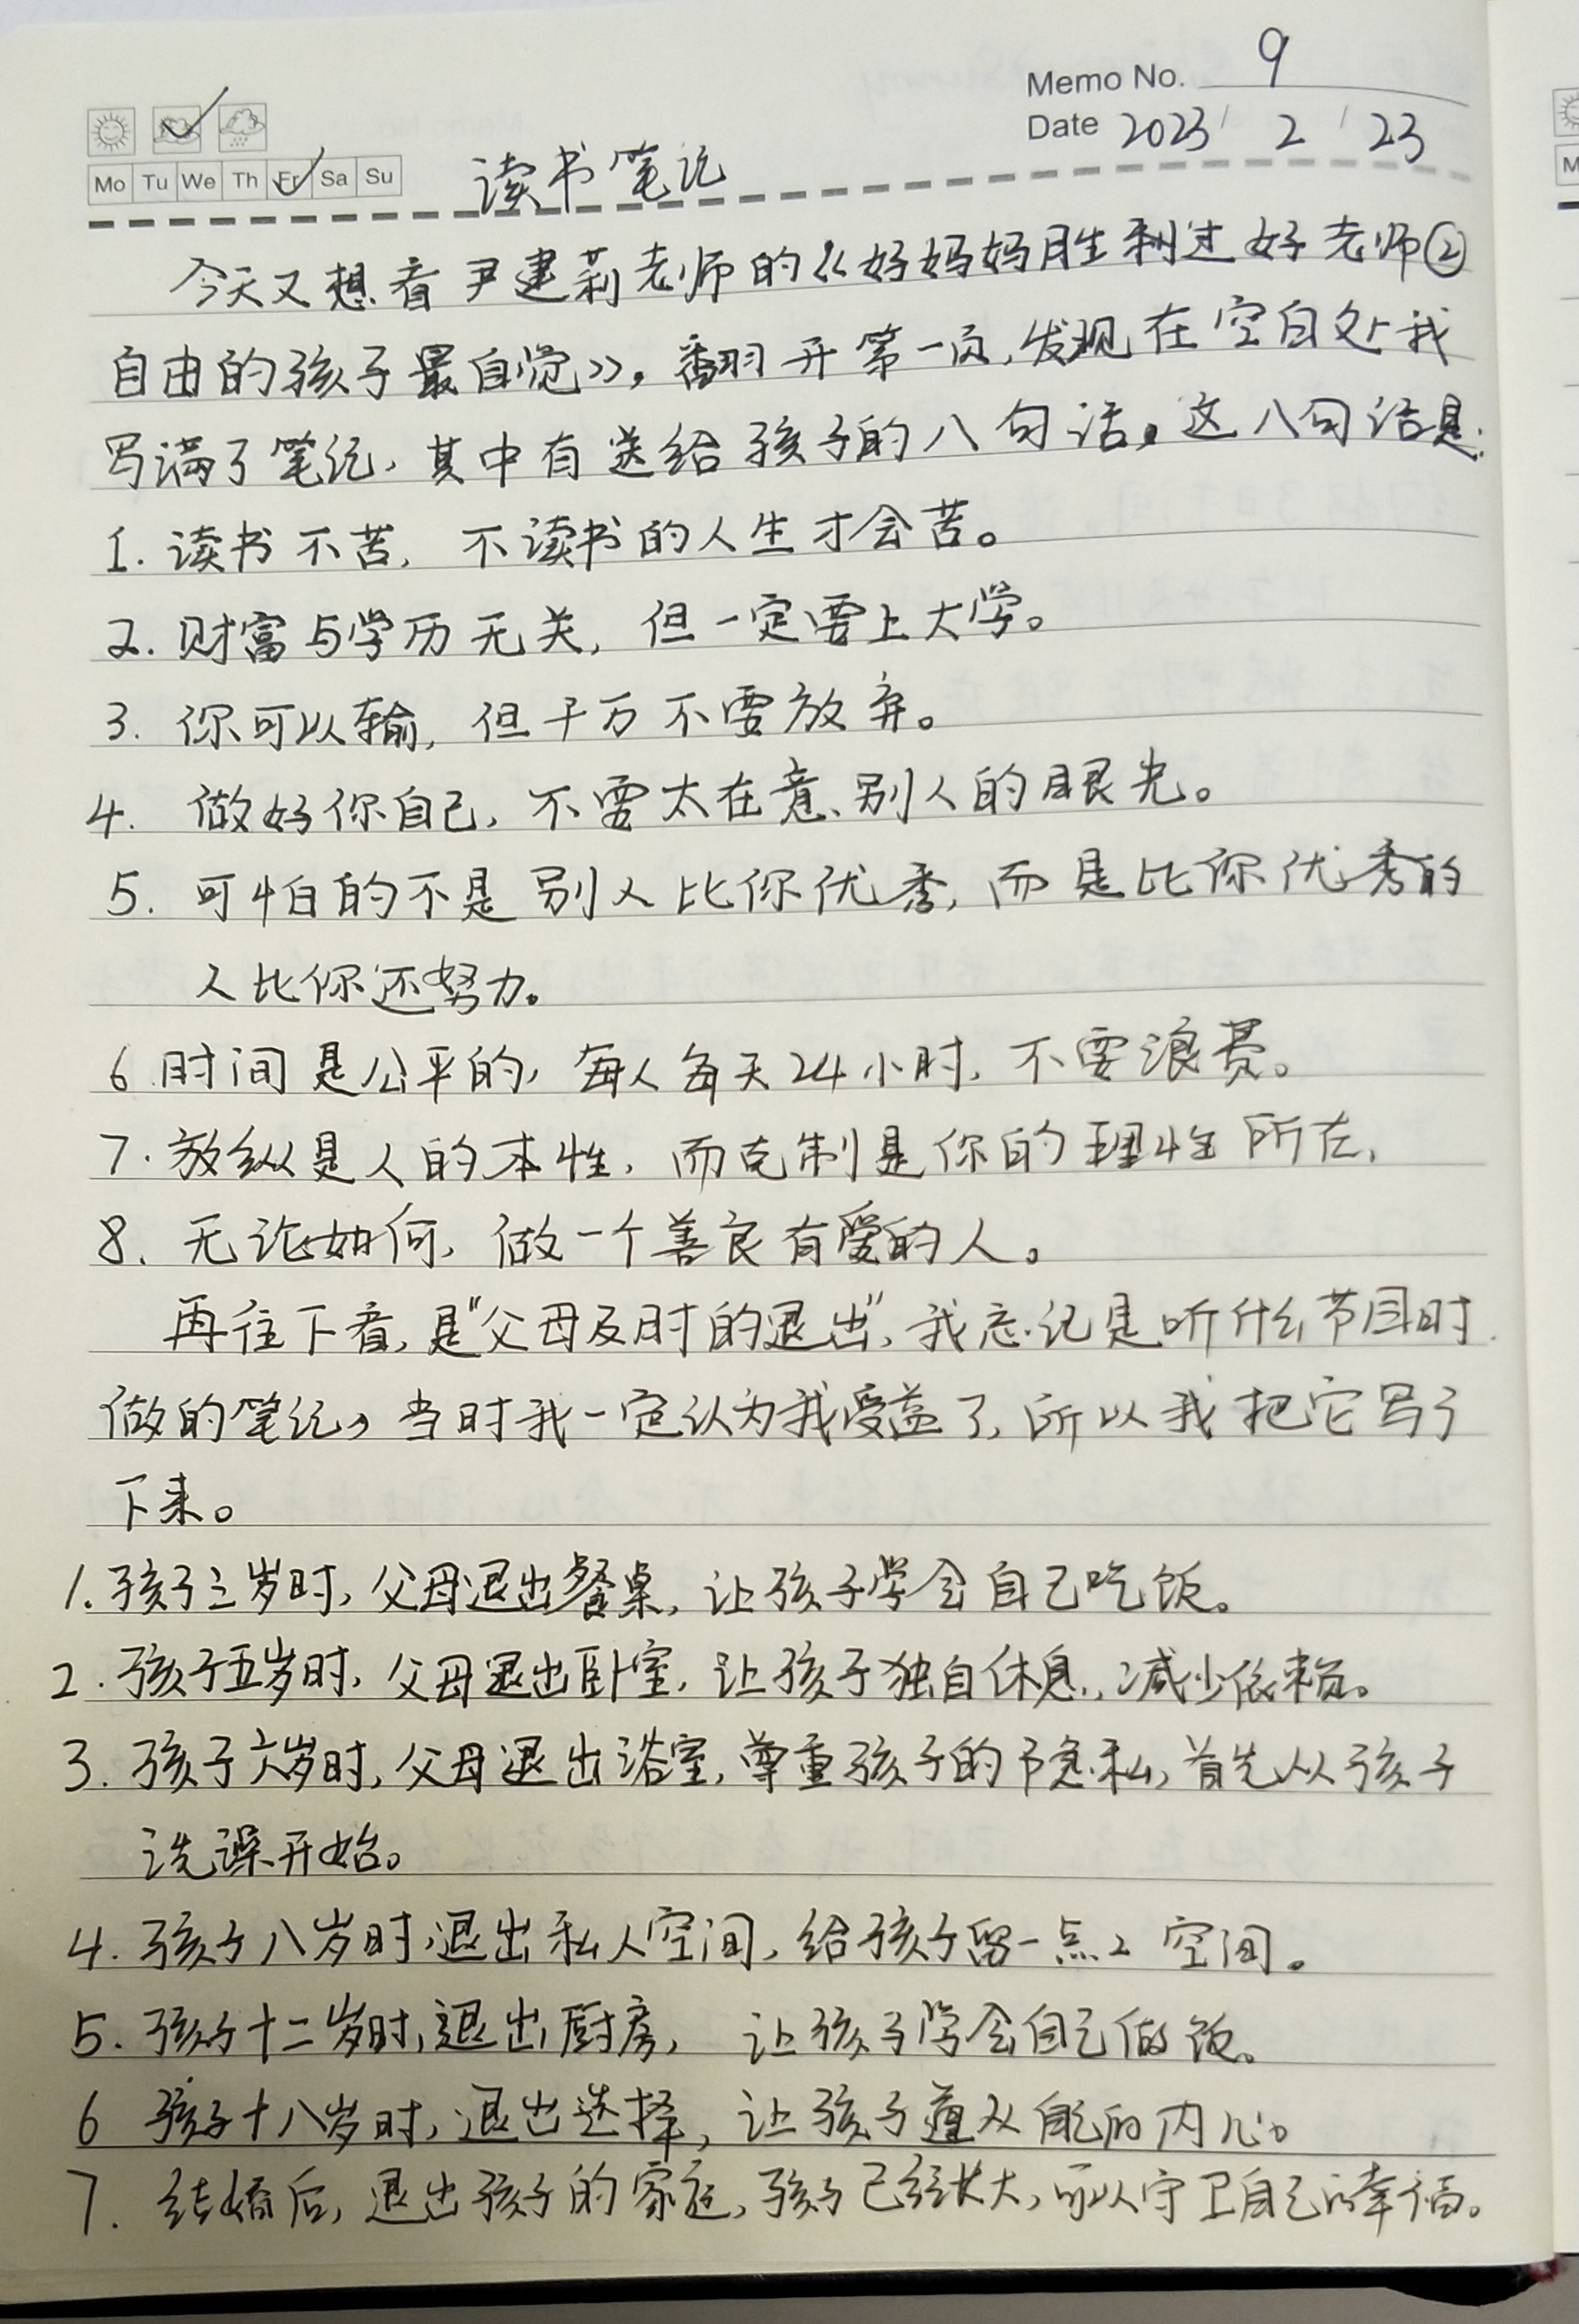 Memo No. 9
Date 2023 / 2 / 23
Mo Tu We Th Fr Sa Su
读书笔记
今天又想看尹建莉老师的《好妈妈胜利过好老师②
自由的孩子最自觉》。翻开第一页,发现在空白处我
写满了笔记,其中有送给孩子的八句话。这八句话是:
1. 读书不苦,不读书的人生才会苦。
2. 财富与学历无关,但一定要上大学。
3. 你可以输,但千万不要放弃。
4. 做好你自己,不要太在意别人的眼光。
5. 可怕的不是别人比你优秀,而是比你优秀的
人比你还努力。
6 时间是公平的,每人每天24小时,不要浪费。
7. 放纵是人的本性,而克制是你的理性所在,
8. 无论如何,做一个善良有爱的人。
再往下看,是"父母及时的退出",我忘记是听什么节目时
做的笔记,当时我一定认为我受益了,所以我把它写了
下来。
1. 孩子三岁时,父母退出餐桌,让孩子学会自己吃饭。
2. 孩子五岁时,父母退出卧室,让孩子独自休息,减少依赖。
3. 孩子六岁时,父母退出浴室,尊重孩子的隐私,首先从孩子
洗澡开始。
4. 孩子八岁时,退出私人空间,给孩子留一点空间。
5. 孩子十二岁时,退出厨房,让孩子学会自己做饭。
6 孩子十八岁时,退出选择,让孩子遵从自己的内心。
7. 结婚后,退出孩子的家庭,孩子已经长大,可以守卫自己的幸福。